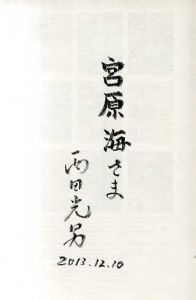 宮原海さま
西田光男
2013.12.10